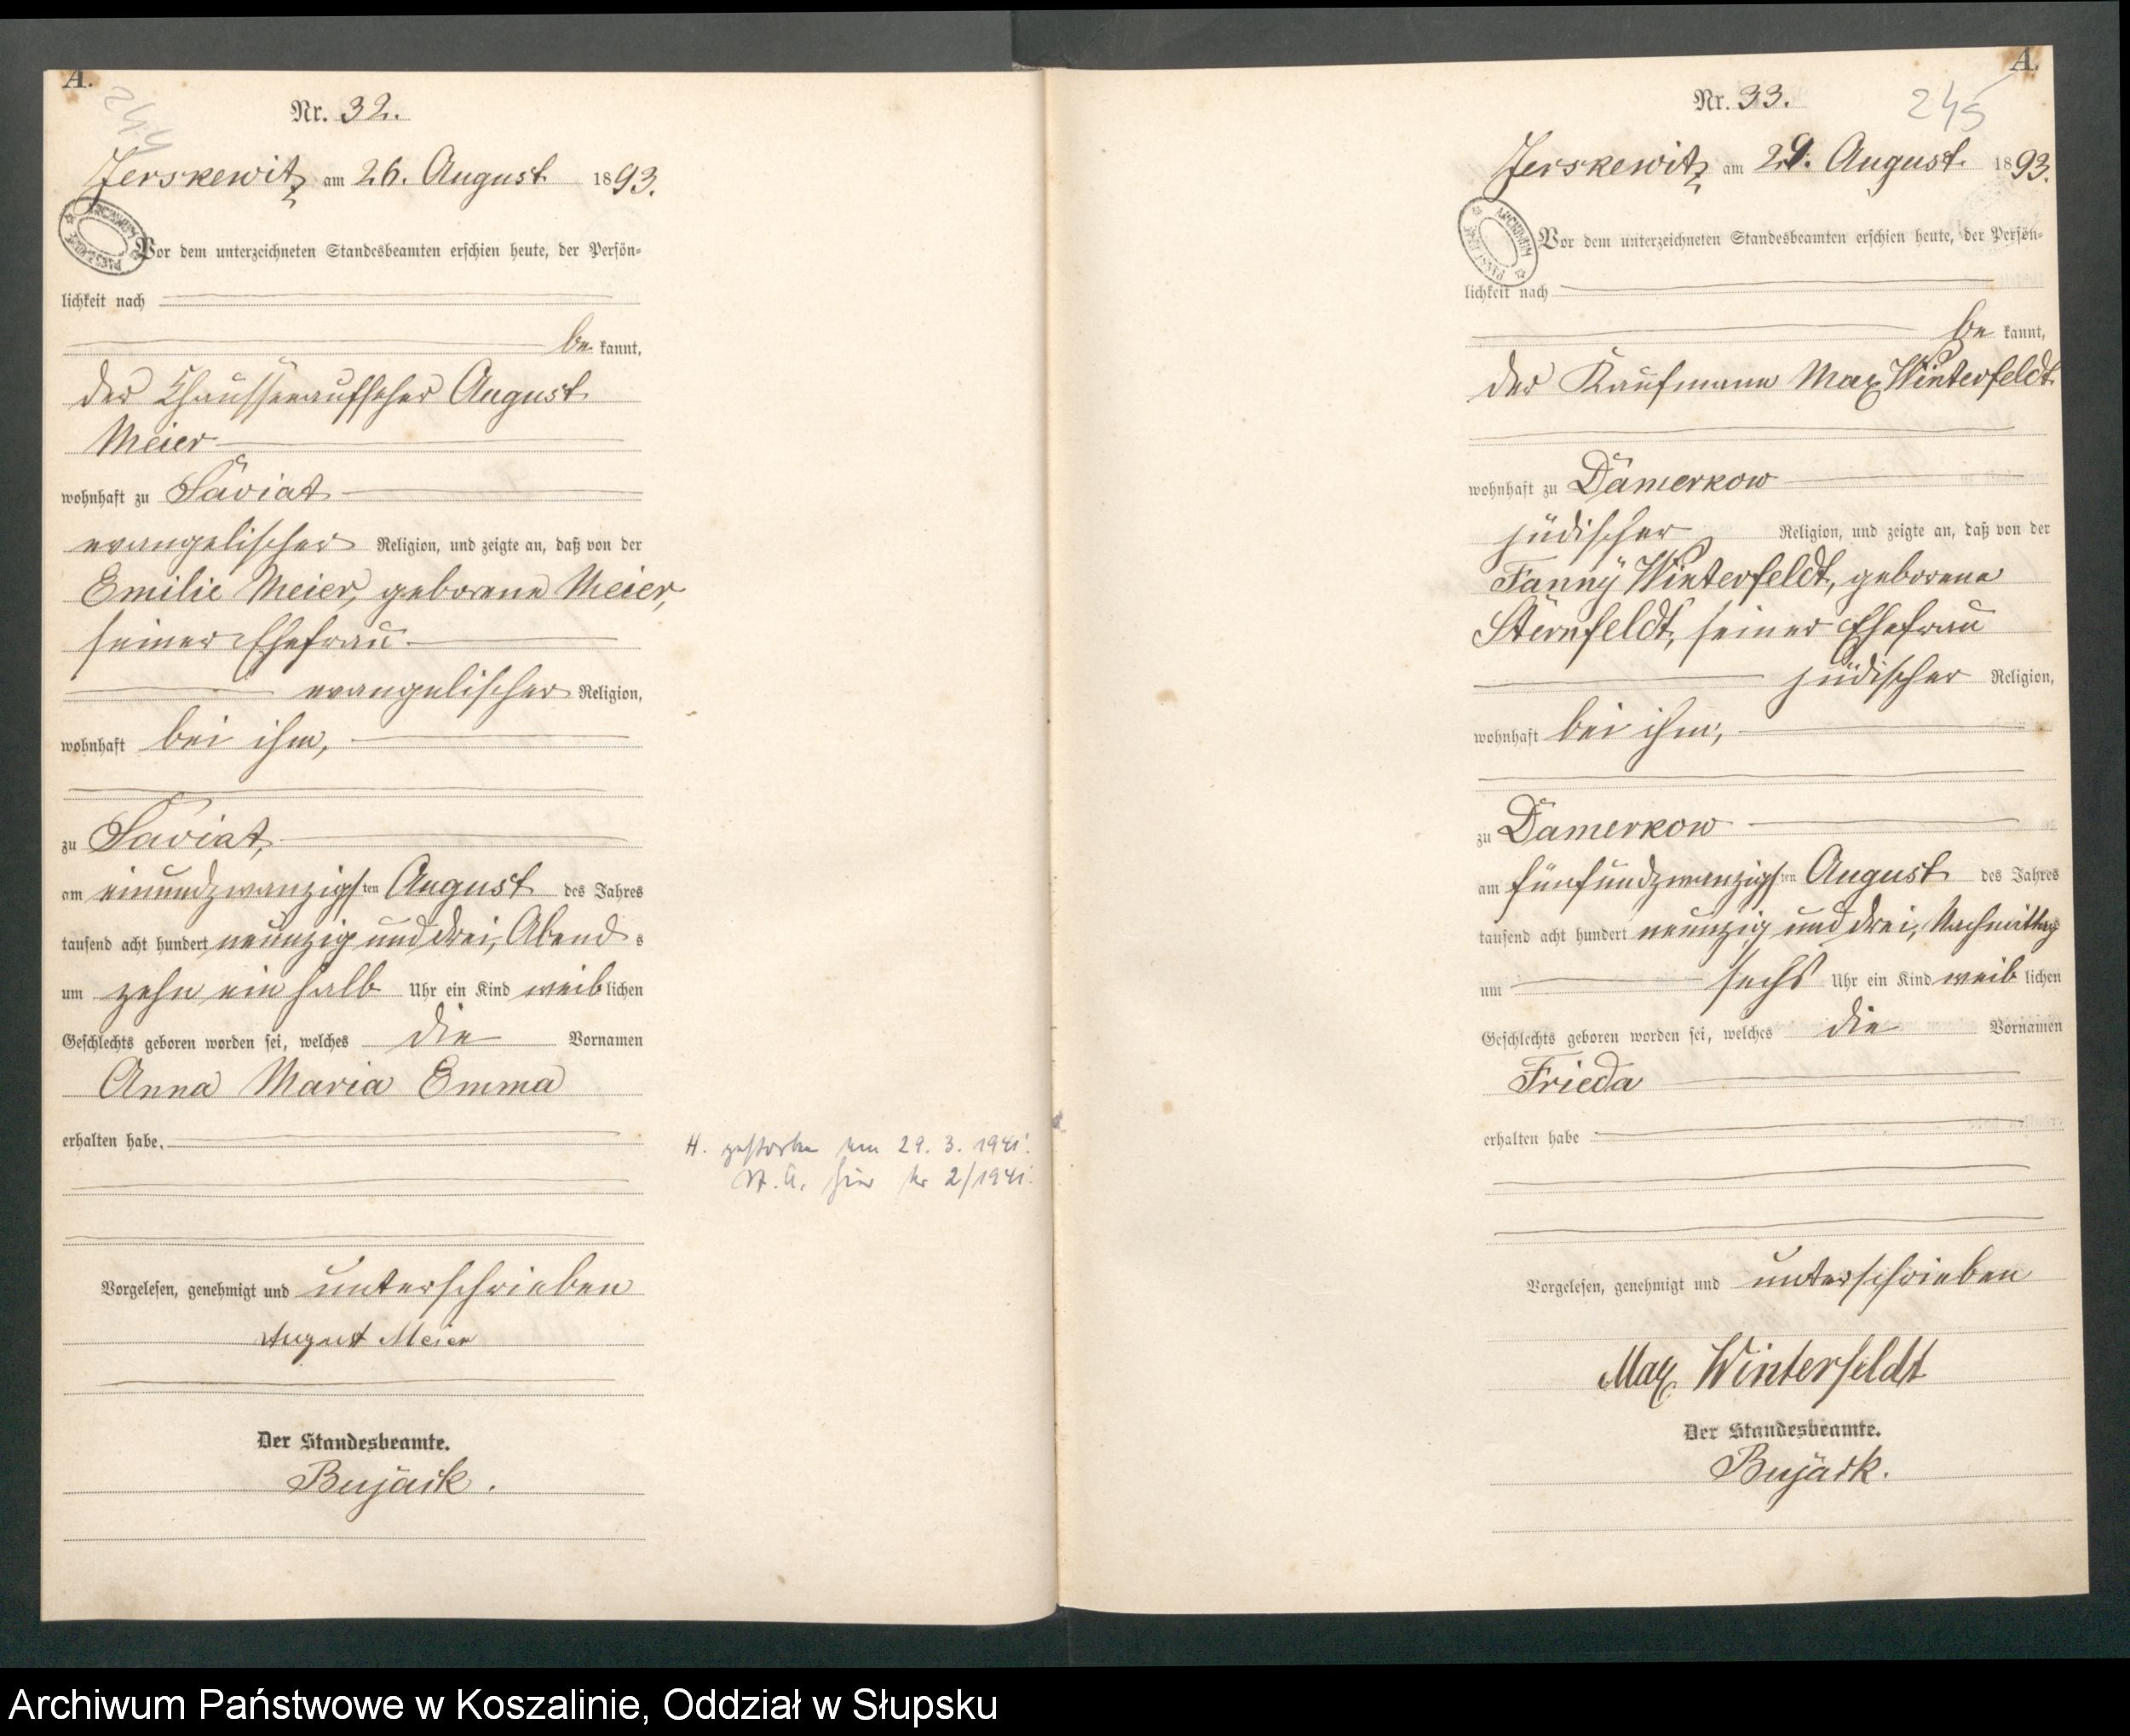 A.
244
Nr. 32.
Jerskewitz am 26. August 1893.
Vor dem unterzeichneten Standesbeamten erschien heute, der Persön-
lichkeit nach
be kannt,
der Chausseeaufseher August
Meier
wohnhaft zu Saviat
evangelischer Religion, und zeigte an, daß von der
Emilie Meier, geborene Meier,
seiner Ehefrau
evangelischer Religion,
wohnhaft bei ihm,
zu Saviat,
am einundzwanzigsten August des Jahres
tausend acht hundert neunzig und drei, Abends
um zehn ein halb Uhr ein Kind weiblichen
Geschlechts geboren worden sei, welches die Vornamen
Anna Maria Emma
erhalten habe.
H. gestorben am 29. 3. 1941.
St. A. hier Nr 2/1941.
Vorgelesen, genehmigt und unterschrieben
August Meier
Der Standesbeamte.
Bujack.
A.
245
Nr. 33.
Jerskewitz am 29. August 1893.
Vor dem unterzeichneten Standesbeamten erschien heute, der Persön-
lichkeit nach
be kannt,
der Kaufmann Max Winterfeldt
wohnhaft zu Damerkow
jüdischer Religion, und zeigte an, daß von der
Fanny Winterfeldt, geborene
Sternfeldt, seiner Ehefrau
jüdischer Religion,
wohnhaft bei ihm,
zu Damerkow
am fünfundzwanzigsten August des Jahres
tausend acht hundert neunzig und drei, Nachmittags
um sechs Uhr ein Kind weiblichen
Geschlechts geboren worden sei, welches die Vornamen
Frieda
erhalten habe
Vorgelesen, genehmigt und unterschrieben
Max Winterfeldt
Der Standesbeamte.
Bujack.
Archiwum Państwowe w Koszalinie, Oddział w Słupsku